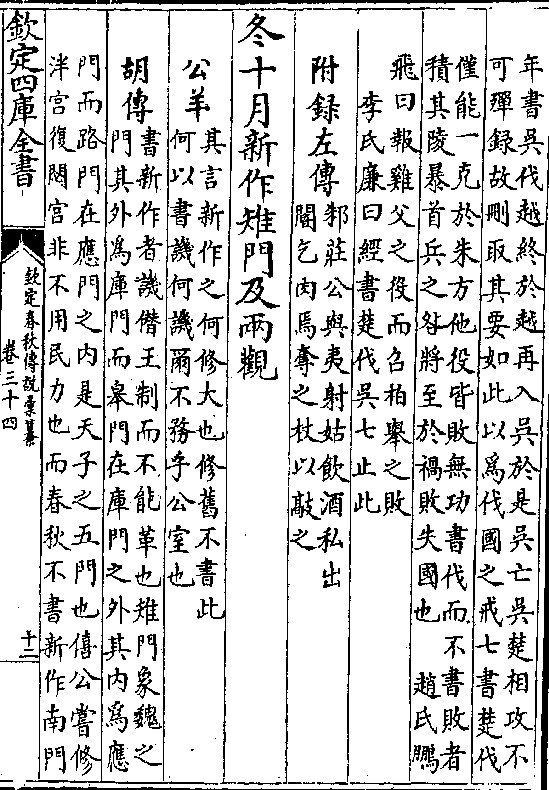 年書吳伐越終於越再入吳於是吳亡吳楚相攻不
可殫録故刪取其要如此以爲伐國之戒七書楚伐
僅能一克於朱方他役皆敗無功書伐而不書敗者
積其陵暴首兵之咎將至於禍敗失國也 趙氏鵬
飛曰報雞父之役而召柏舉之敗
李氏廉曰經書楚伐吳七止此
附録左傳 邾莊公與夷射姑飲酒私出
閽乞肉焉奪之杖以敲之
冬十月新作雉門及兩觀
公羊 其言新作之何修大也修舊不書此
何以書譏何譏爾不務乎公室也
胡傳 書新作者譏僭王制而不能革也雉門象魏之
門其外爲庫門而皋門在庫門之外其内爲應
門而路門在應門之内是天子之五門也僖公嘗修
泮宫復閟宫非不用民力也而春秋不書新作南門
欽定四庫全書
欽定春秋傳說彙纂
卷三十四
十二